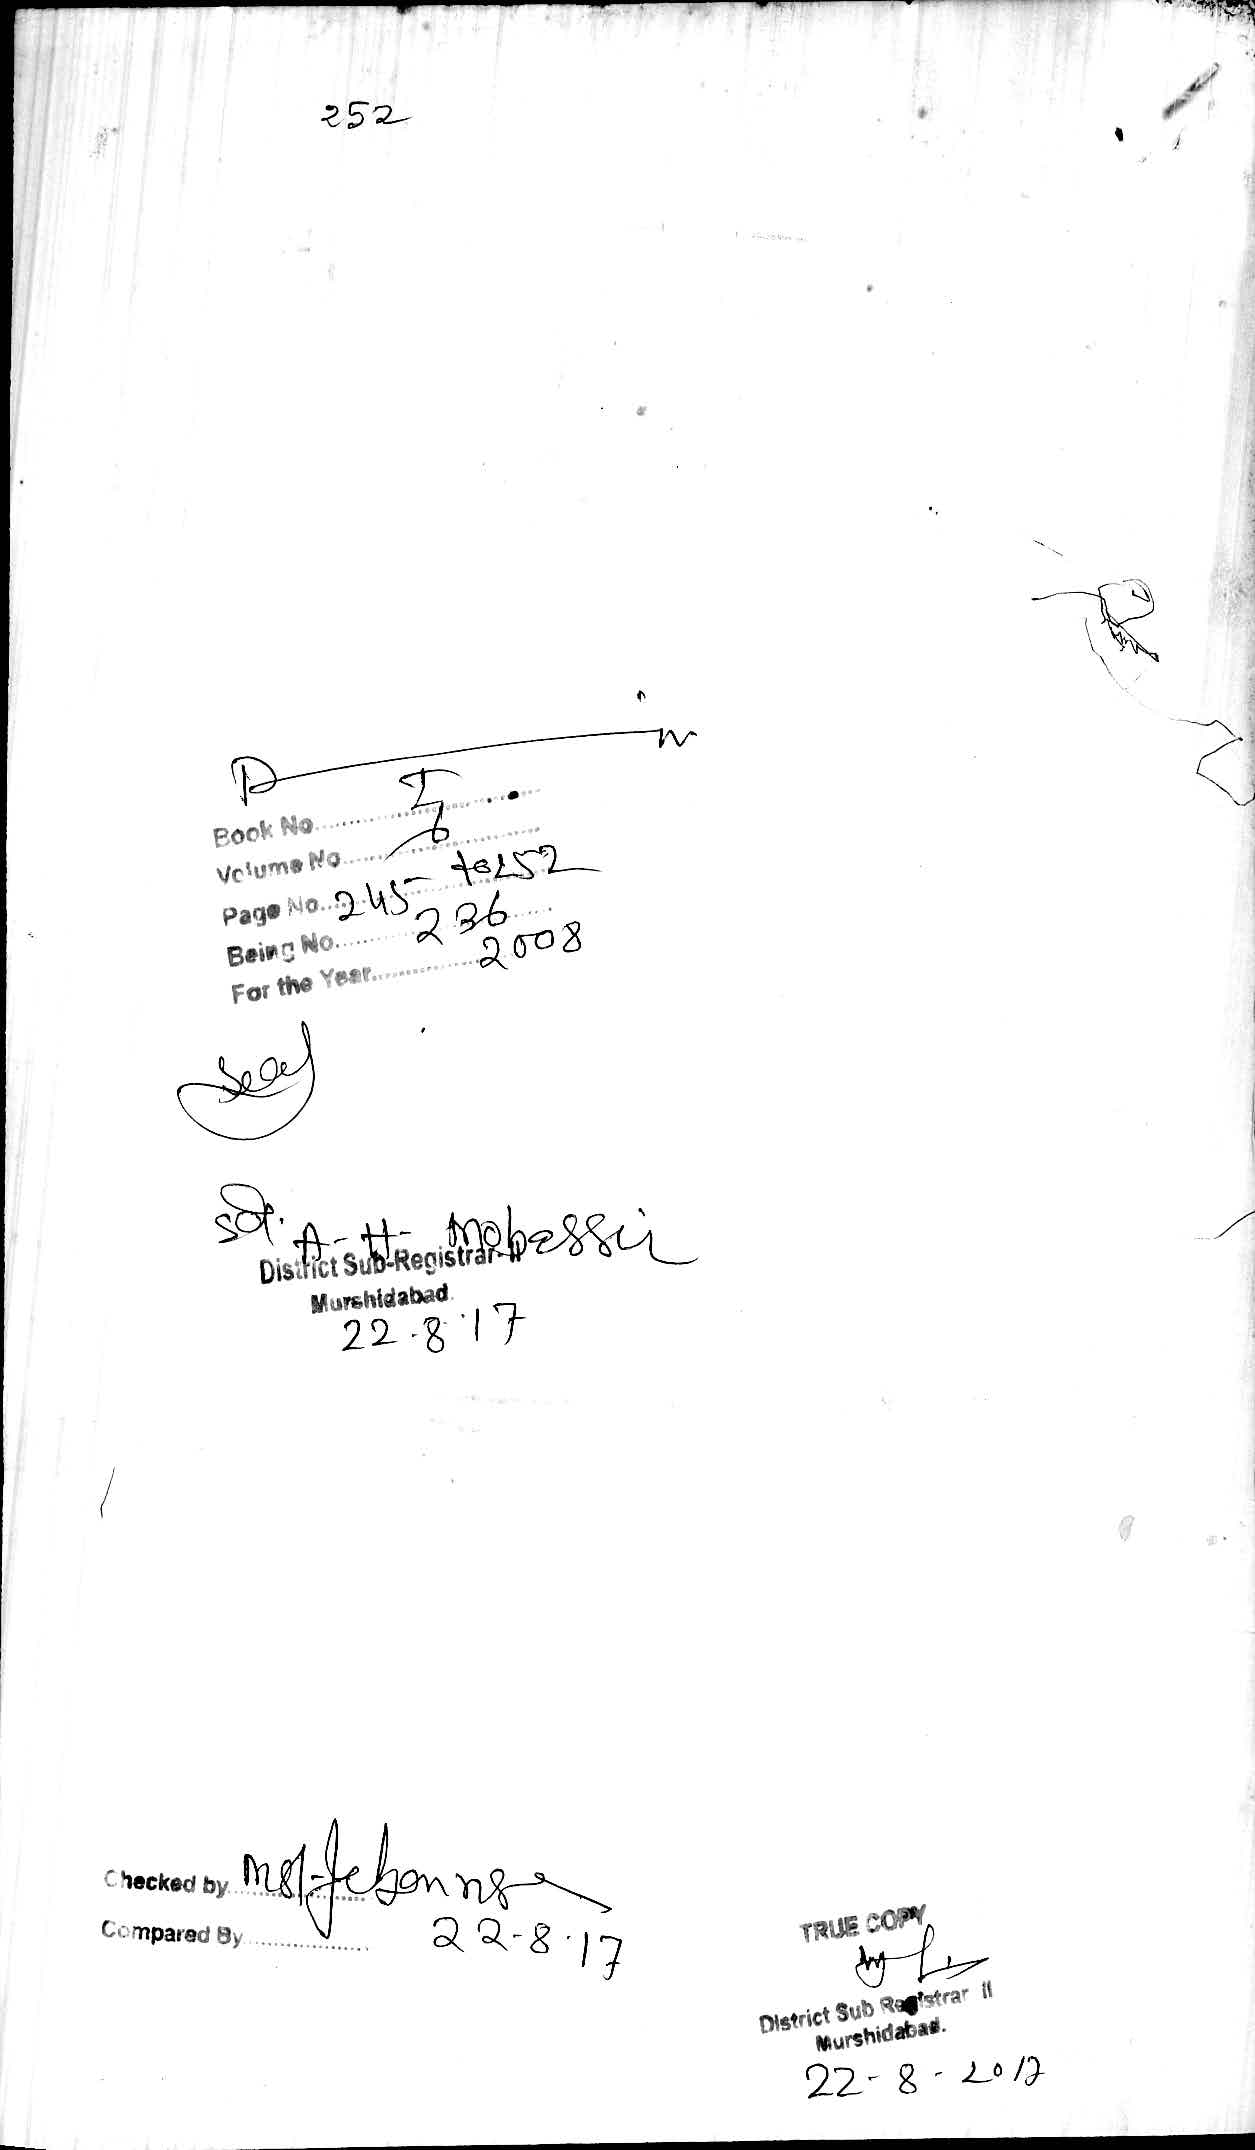 252
Book No. I
Volume No. 6
Page No. 245 to 252
Being No. 236
For the Year 2008
Seal
Sd/. A-H- Mobassir
District Sub-Registrar-II
Murshidabad.
22.8.17
Checked by
Compared By
22-8.17
TRUE COPY
District Sub Registrar II
Murshidabad.
22-8-2017